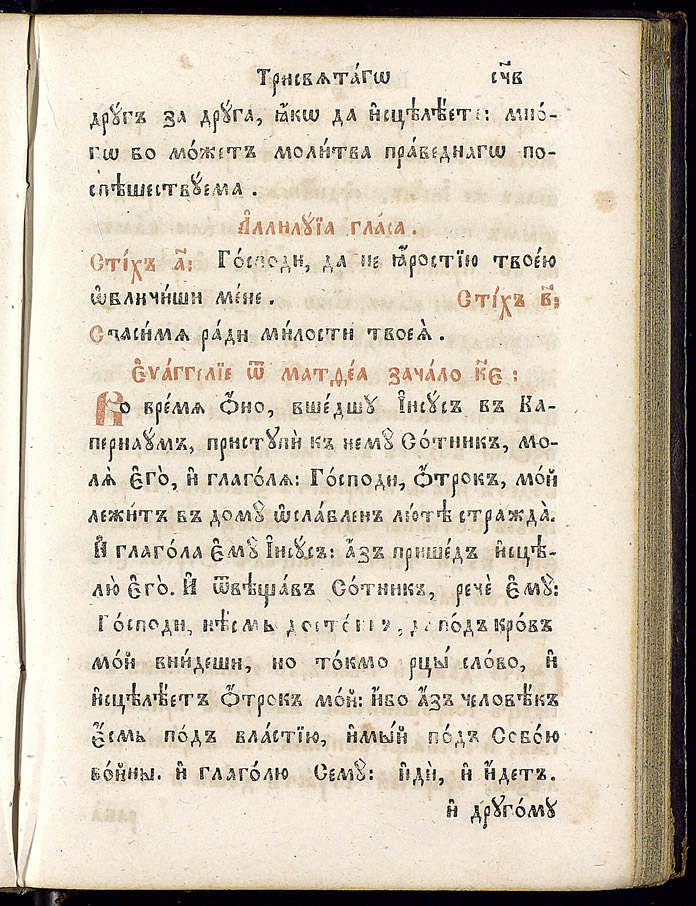 Трисвѧта́гѡ сч҃в
дрꙋ́гъ за дрꙋ́га, ꙗ҆́кѡ да и҆сцѣлѣ́ете: мно́-
гѡ бо мо́жетъ моли́тва пра́веднагѡ по-
спѣ́шествꙋема .
А҆ллилꙋ́їа гла́са .
Сті́хъ а҃: Го́споди, да не ꙗ҆́ростїю твое́ю
ѡ҆бличи́ши ме́не . Сті́хъ в҃;
Счаси́мѧ ра́ди ми́лости твоеѧ̀ .
Є҆ѵа́ггелїе ѿ матѳе́а зача́ло к҃є :
Во вре́мѧ ѻ҆́но, вше́дшꙋ І҆исꙋ́съ въ Ка-
пернаꙋ́мъ, пристꙋпѝ къ немꙋ̀ Со́тникъ, мо-
лѧ̀ Є҆го̀, и҆ глаго́лѧ: Го́споди, ѻ҆́трокъ, мо́й
лежи́тъ въ домꙋ̀ ѡ҆сла́вленъ лю́тѣ стражда̀.
И҆ глаго́ла Є҆мꙋ̀ І҆исꙋ́съ: а҆́зъ прише́дъ и҆сцѣ-
лю̀ Є҆го̀. И҆ ѿвѣща́въ Со́тникъ, речѐ Є҆мꙋ̀:
Го́споди, нѣ́смь досто́инъ, да под̾ъ кро́въ
мо́й вни́деши, но то́кмо рцы̀ сло́во, и҆
и҆сцѣлѣ́етъ ѻ҆́трокъ мо́й: и҆́бо а҆́зъ человѣ́къ
є҆́смь по́дъ вла́стїю, и҆мы́й по́дъ Собо́ю
во́йны. и҆ глаго́лю Семꙋ̀: и҆дѝ, и҆ и҆́детъ.
и҆ дрꙋго́мꙋ